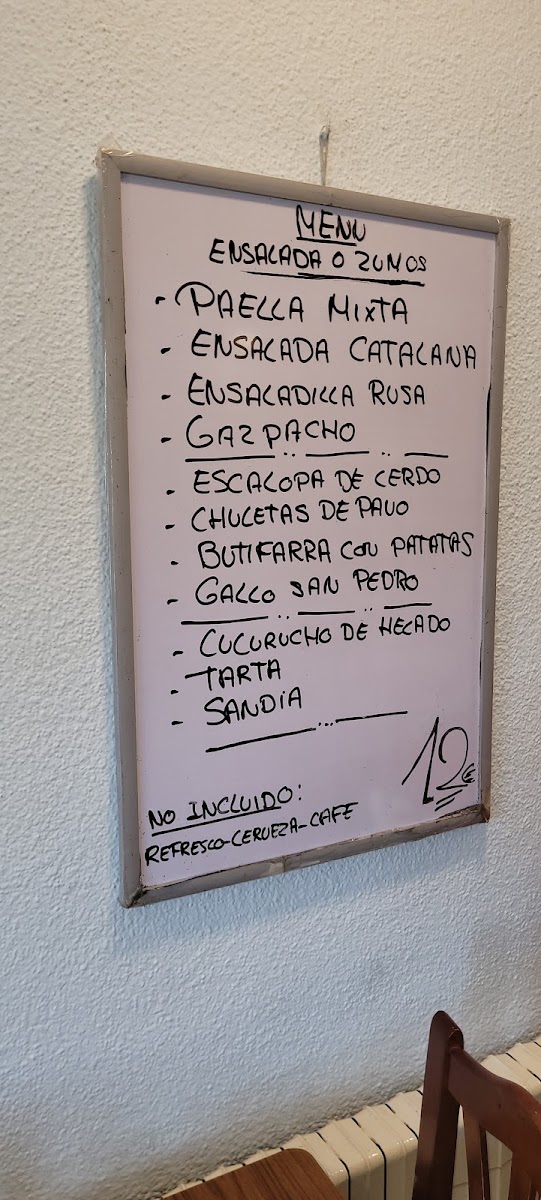 MENU
ENSALADA O ZUMOS
- PAELLA MIXTA
- ENSALADA CATALANA
- ENSALADILLA RUSA
- GAZPACHO
- ESCALOPA DE CERDO
- CHULETAS DE PAVO
- BUTIFARRA CON PATATAS
- GALLO SAN PEDRO
- CUCURUCHO DE HELADO
- TARTA
- SANDIA
12€
NO INCLUIDO:
REFRESCO-CERVEZA-CAFE